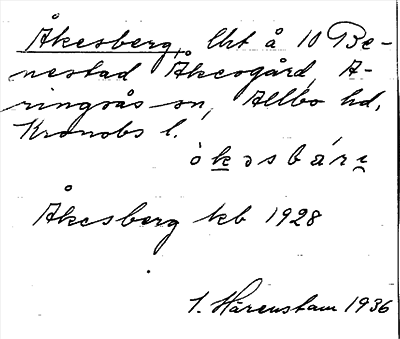 Åkesberg, lht å 10 Be-
nestad Åkesgård, A-
ringsås sn, Allbo hd,
Kronobs l.
ò k ə s b á r ι
Åkesberg kb 1928
1. Härenstam 1936